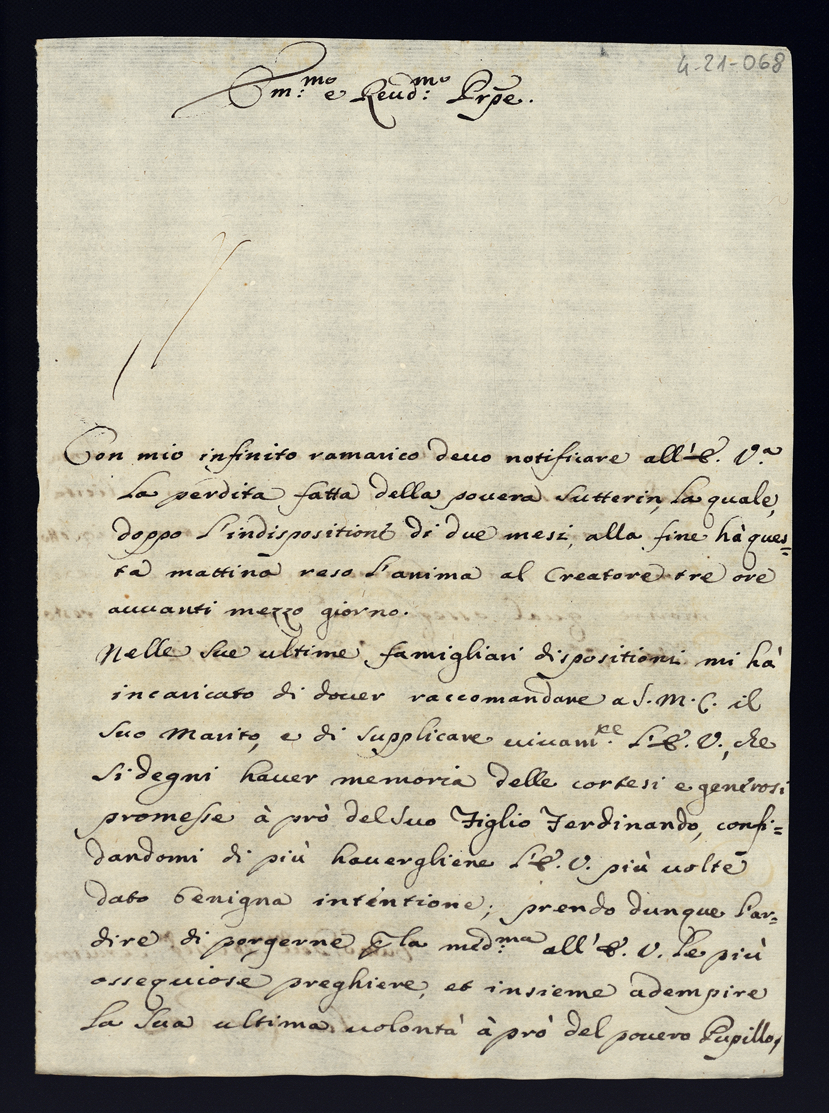 4-21-068
Em:mo e Reud:mo Prpe.
Con mio infinito ramarico deuo notificare all'E. V.a
La perdita fatta della pouera Sutterin, La quale,
doppo L'indispositione di due mesi, alla fine hà ques=
ta mattina reso L'anima al Creatore tre ore
auuanti mezzo giorno.
Nelle Sue ultime famigliari dispositioni mi hà
incaricato di douer raccomandare a S. M. C. il
Suo Marito, e di Supplicare uiuam.te L'E. V., che
Si degni hauer memoria delle cortesi e generosi
promesse à prò del Suo Figlio Ferdinando, confi=
dandomi di più hauergliene L'E. V. più uolte
dato benigna intentione; prendo dunque l'ar=
dire di porgerne p la med:ma all'E. V. Le più
ossequiose preghiere, et insieme adempire
La Sua ultima uolontà à prò del pouero Pupillo,